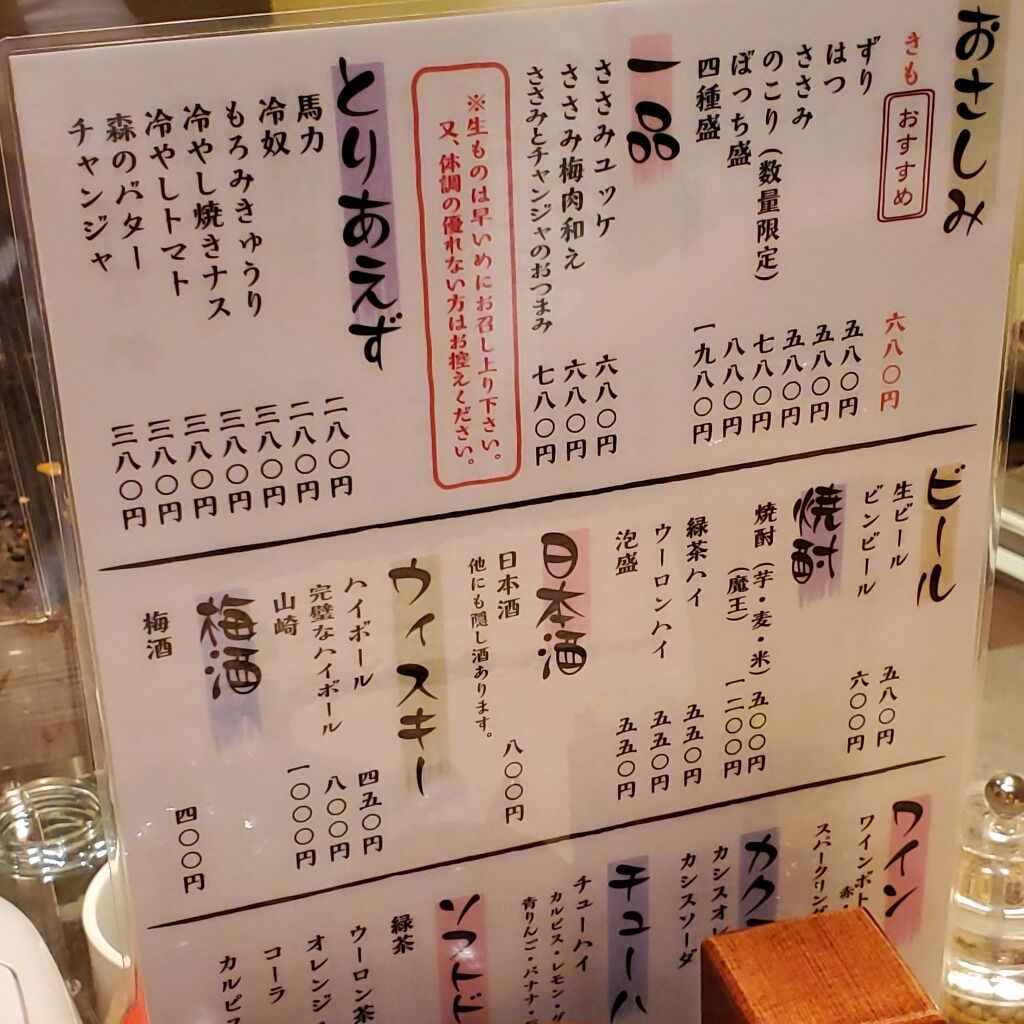 おさしみ
きも おすすめ 六八〇円
ずり 五八〇円
はつ 五八〇円
ささみ 五八〇円
のこり(数量限定) 七八〇円
ぼっち盛 八八〇円
四種盛 一九八〇円
一品
ささみユッケ 六八〇円
ささみ梅肉和え 六八〇円
ささみとチャンジャのおつまみ 七八〇円
※生ものは早いめにお召し上り下さい。
又、体調の優れない方はお控えください。
とりあえず
馬力 二八〇円
冷奴 二八〇円
もろみきゅうり 三八〇円
冷やし焼きナス 三八〇円
冷やしトマト 三八〇円
森のバター 三八〇円
チャンジャ 三八〇円
ビール
生ビール 五八〇円
ビンビール 六〇〇円
焼酎
焼酎(芋・麦・米) 五〇〇円
(魔王) 一二〇〇円
緑茶ハイ 五五〇円
ウーロンハイ 五五〇円
泡盛 五五〇円
日本酒
日本酒 八〇〇円
他にも隠し酒あります。
ウィスキー
ハイボール 四五〇円
完璧なハイボール 八〇〇円
山崎 一〇〇〇円
梅酒
梅酒 四〇〇円
ワイン
ワインボト
赤・
スパークリング
カク
カシスオレ
カシスソーダ
チューハ
チューハイ
カルピス・レモン・グ
青りんご・バナナ・
ソフトド
緑茶
ウーロン茶
オレンジ
コーラ
カルピス